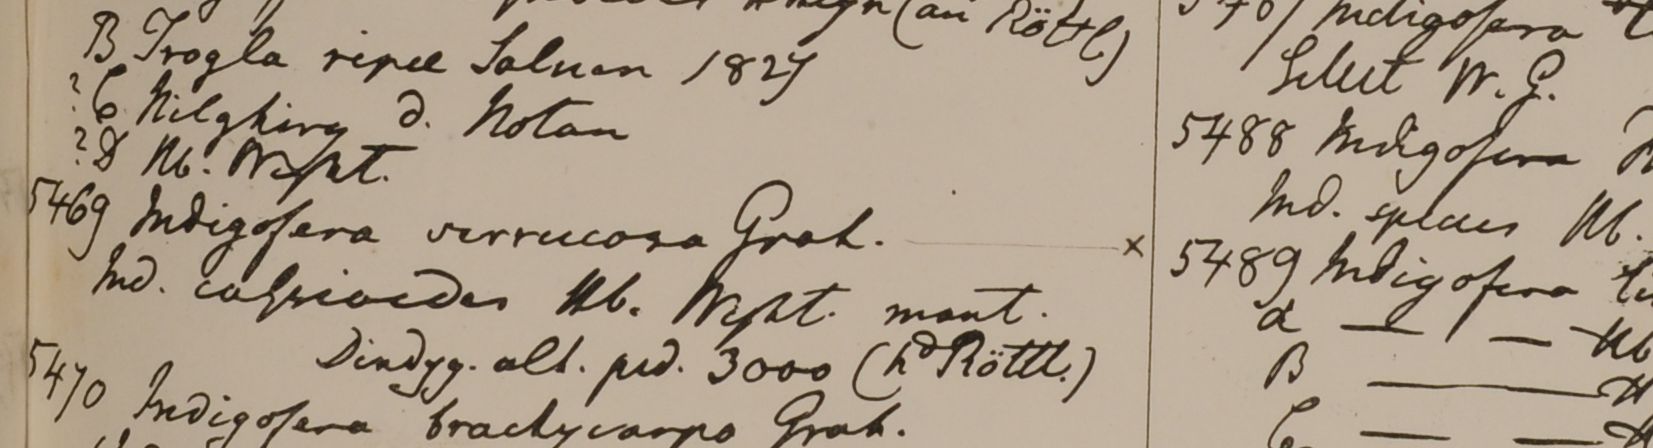 (an Röttl.)
B Trogla ripae Saluen 1827
? C Nilghiry d. Notan
? D Hb. Wight.
5469 Indigofera verrucosa Grah. ×
Ind. cassioedes Hb. Wight. mont.
Dindyg. alt. ped. 3000 (hd Röttl.)
5470 Indigofera brachycarpa Grah.
Indigofera
Select W. G.
5488 Indigofera
Ind. species Hb.
5489 Indigofera
α — — Hb
B — H
C — — H